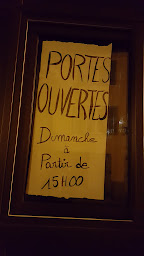 PORTES
OUVERTES
Dimanche
à
Partir de
15H00